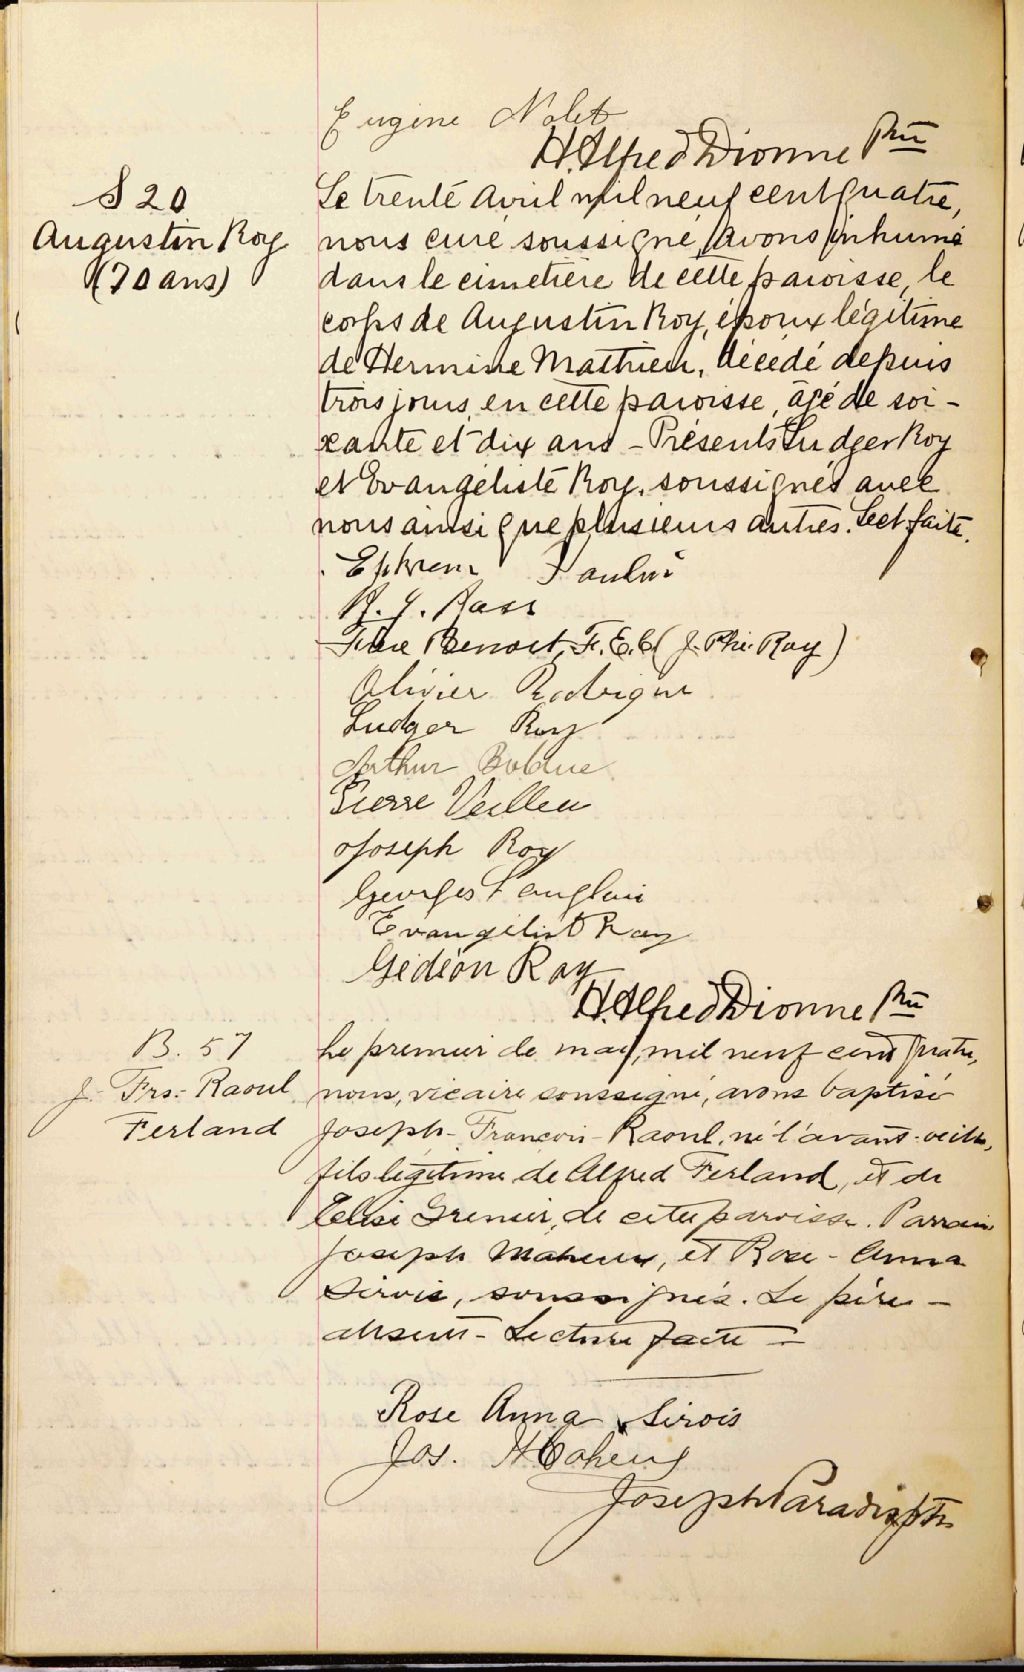 Eugène Nolet
H. Alfred Dionne Ptre
S 20
Augustin Roy
(70 ans)
Le trente Avril mil neuf cent quatre,
nous curé soussigné, avons inhumé
dans le cimetière de cette paroisse, le
corps de Augustin Roy, époux légitime
de Hermine Mathieu, décédé depuis
trois jours, en cette paroisse, âgé de soi-
xante et dix ans - Présents Ludger Roy
et Evangéliste Roy, soussignés avec
nous ainsi que plusieurs autres. Lect. faite.
Ephrem Paulin
Frère Benoit, F.E.C (J. Phi. Roy)
Olivier Rodrigue
Ludger Roy
Arthur Bolduc
Pierre Veilleu
Joseph Roy
Georges Langlois
Evangélist Roy
Gédéon Roy
H. Alfred Dionne Ptre
B. 57
J. Frs.- Raoul
Ferland
Le premier de mai, mil neuf cent quatre,
nous, vicaire soussigné, avons baptisé
Joseph - François - Raoul, né l'avant-veille,
fils légitime de Alfred Ferland, et de
Elise Grenier, de cette paroisse. Parrain
Joseph Maheux, et Rose - Anna
Sirois, soussignés. Le père -
absent - Lecture faite -
Rose Anna Sirois
Jos. Maheux
Joseph Paradis ptr